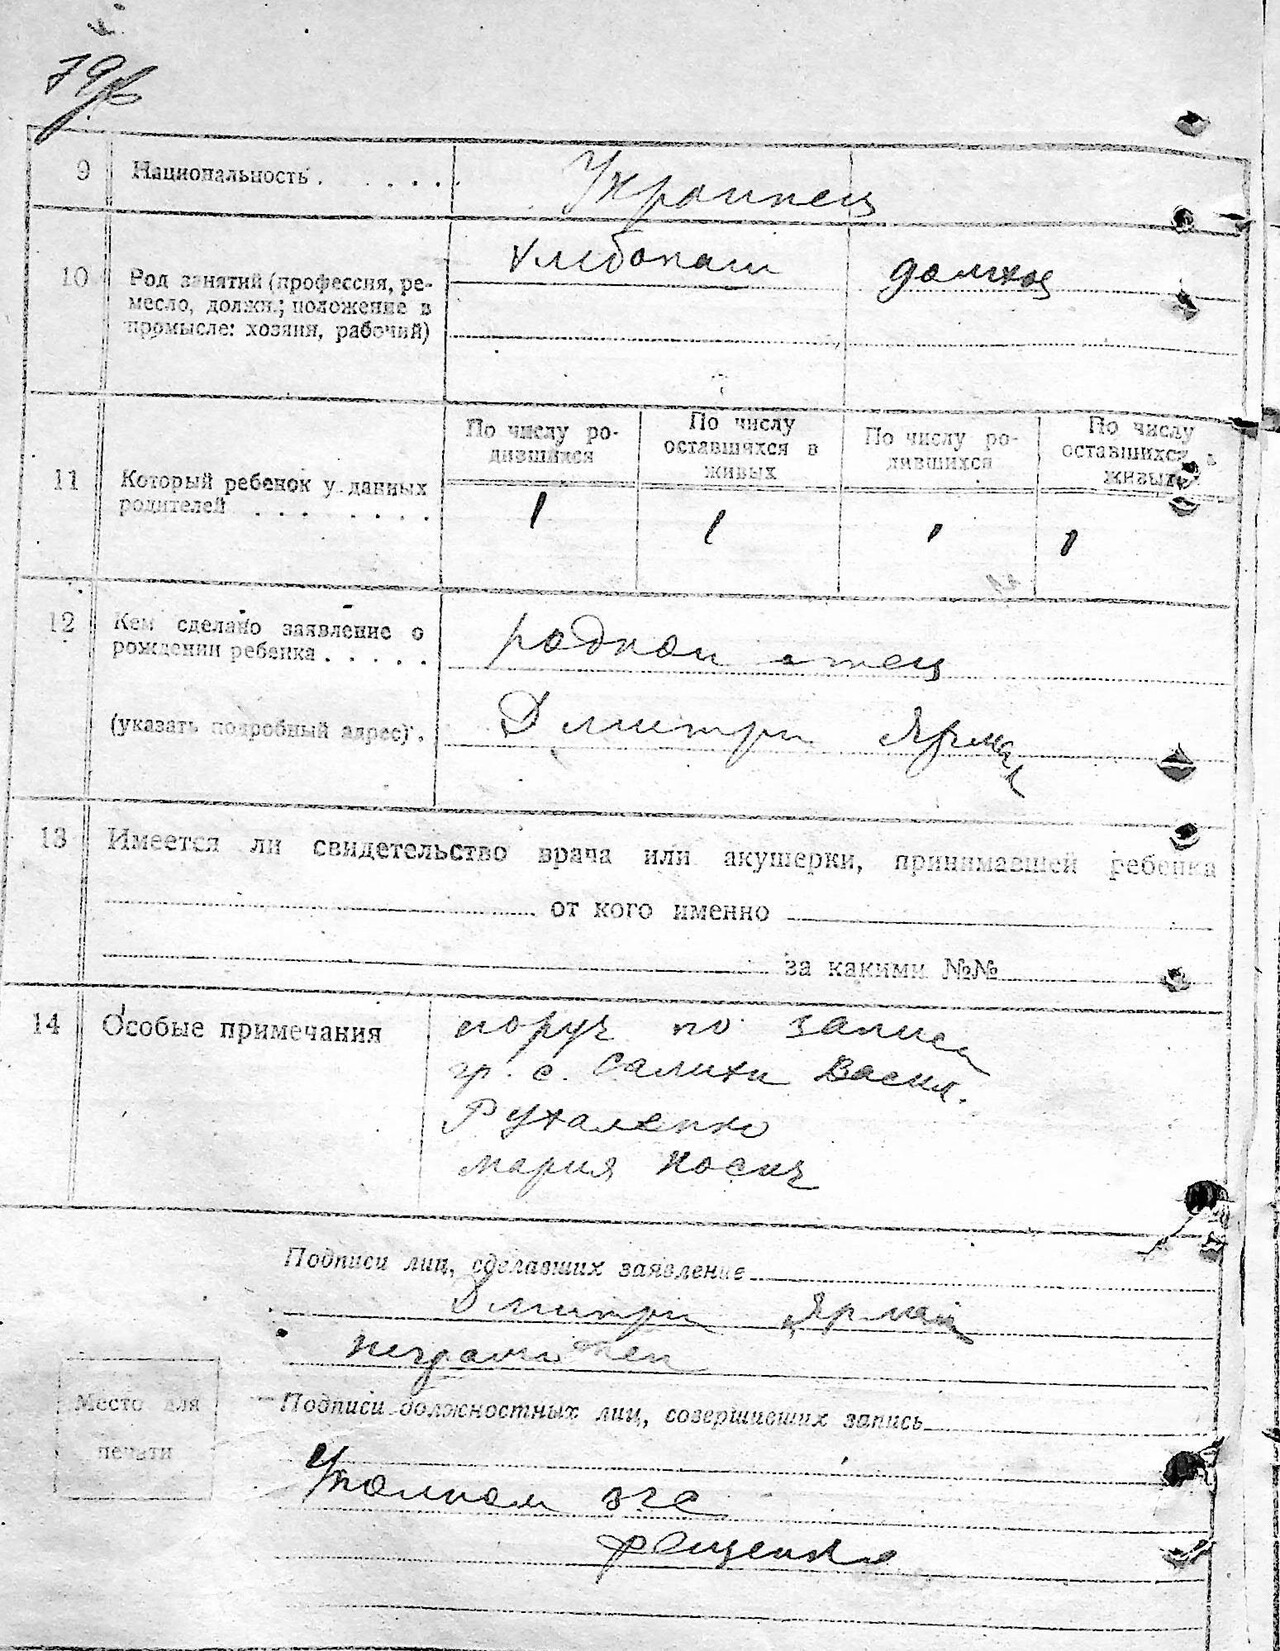 79
9 Национальность . . . . . .
Украинец
10 Род занятий (профессия, ре-
месло, должн.; положение в
промысле: хозяин, рабочий)
Хлебопаш
домхоз
11 Который ребенок у данных
родителей . . . . . . . .
По числу ро-
дившихся
По числу
оставшихся в
живых
По числу ро-
дившихся
По числу
оставшихся в
живых
1 1 1 1
12 Кем сделано заявление о
рождении ребенка . . . . .
(указать подробный адрес) .
родной отец
Дмитри Ярмак
13 Имеется ли свидетельство врача или акушерки, принимавшей ребенка
от кого именно
за какими №№
14 Особые примечания
поруч по записи
гр. с. Салихи Васил.
Рухаленко
Мария Носич
Подписи лиц, сделавших заявление
Дмитри Ярмак
неграмотен
Место для
печати
Подписи должностных лиц, совершивших запись
Уполном загс